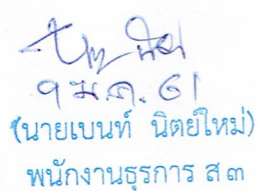 ๑ ม.ค. 61
(นายเบนท์ นิตย์ใหม่)
พนักงานธุรการ ส ๓